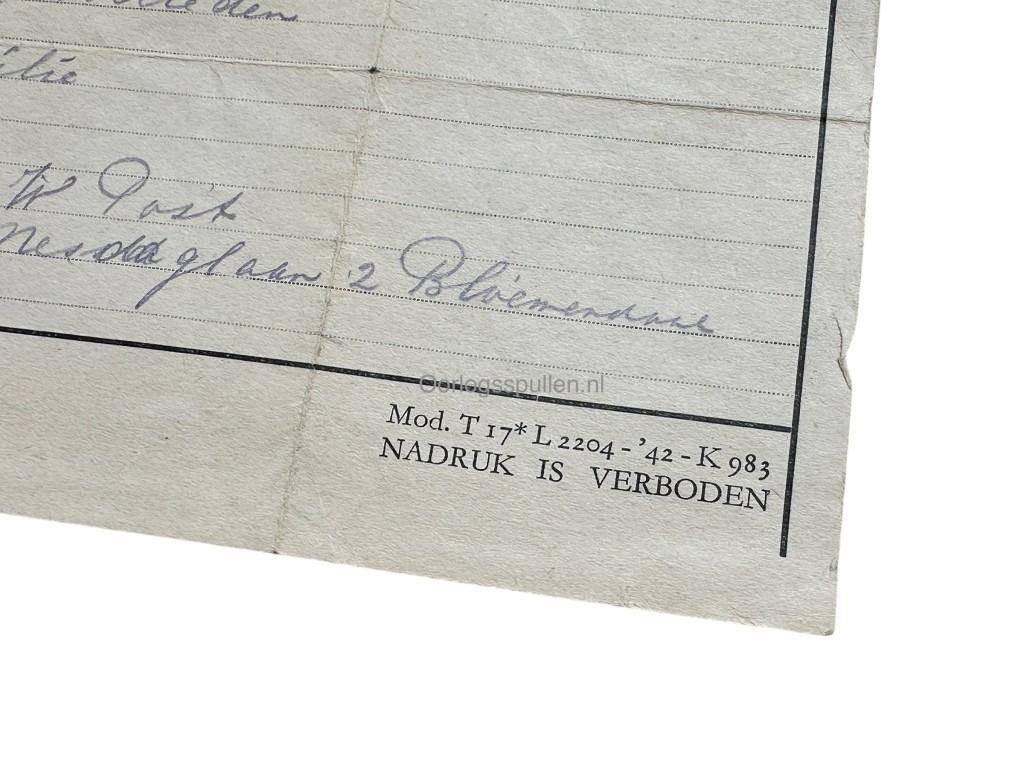 W Post
Mesdaglaan 2 Bloemendaal
Oorlogsspullen.nl
Mod. T 17* L 2204 - '42 - K 983
NADRUK IS VERBODEN